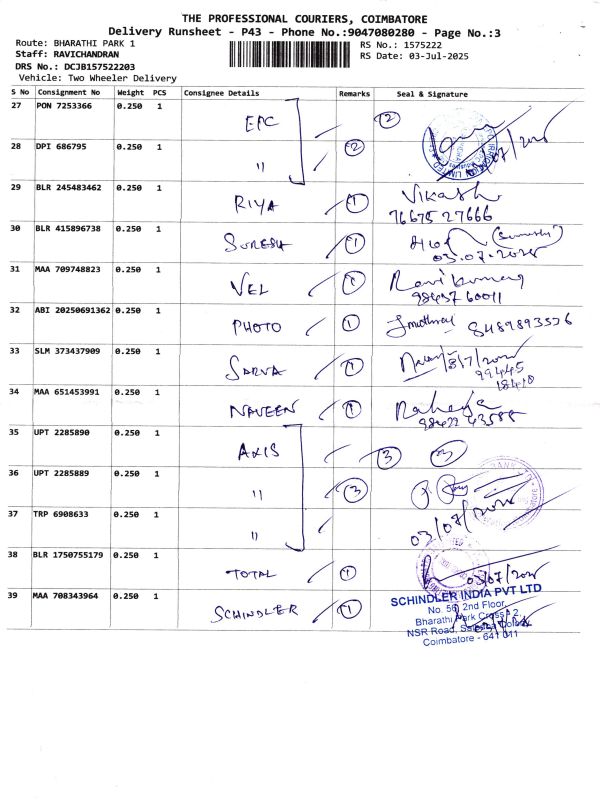 THE PROFESSIONAL COURIERS, COIMBATORE
Delivery Runsheet - P43 - Phone No.:9047080280 - Page No.:3
Route: BHARATHI PARK 1
Staff: RAVICHANDRAN
DRS No.: DCJB157522203
Vehicle: Two Wheeler Delivery
RS No.: 1575222
RS Date: 03-Jul-2025
S No Consignment No Weight PCS Consignee Details Remarks Seal & Signature
27 PON 7253366 0.250 1 EPC 2
28 DPI 686795 0.250 1 " 2
29 BLR 245483462 0.250 1 RIYA 1 Vikash
76675 27666
30 BLR 415896738 0.250 1 SURESH 1
03.07.2025
31 MAA 709748823 0.250 1 VEL 1 Ravikumar
98437 60011
32 ABI 20250691362 0.250 1 PHOTO 1 8489893576
33 SLM 373437909 0.250 1 SARVA 1
99445
18410
34 MAA 651453991 0.250 1 NAVEEN 1
98422 43588
35 UPT 2285890 0.250 1 AXIS 3 3
36 UPT 2285889 0.250 1 " 3
37 TRP 6908633 0.250 1 "
03/07/2025
38 BLR 1750755179 0.250 1 TOTAL 1 03/07/2025
39 MAA 708343964 0.250 1 SCHINDLER 1
SCHINDLER INDIA PVT LTD
No. 56, 2nd Floor,
Bharathi Park Cross 2,
NSR Road, Saibaba Colony
Coimbatore - 641 011